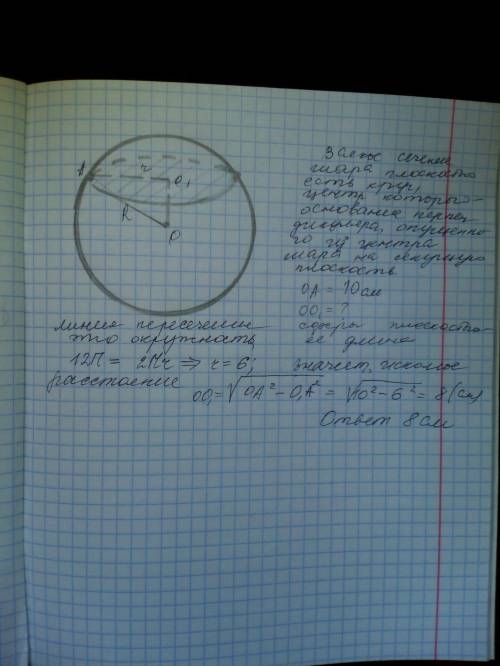 r
A
O₁
R
O
Всякое сечение
шара плоскостью
есть круг,
центр которого -
основание перпен-
дикуляра, опущенно-
го из центра
шара на секущую
плоскость
OA = 10 см
OO₁ = ?
линия пересечения сферы плоскостью -
это окружность, ее длина
12П = 2Пr ⇒ r = 6; значит, искомое
расстояние OO₁ = √OA² - O₁A² = √10² - 6² = 8 (см)
Ответ 8 см